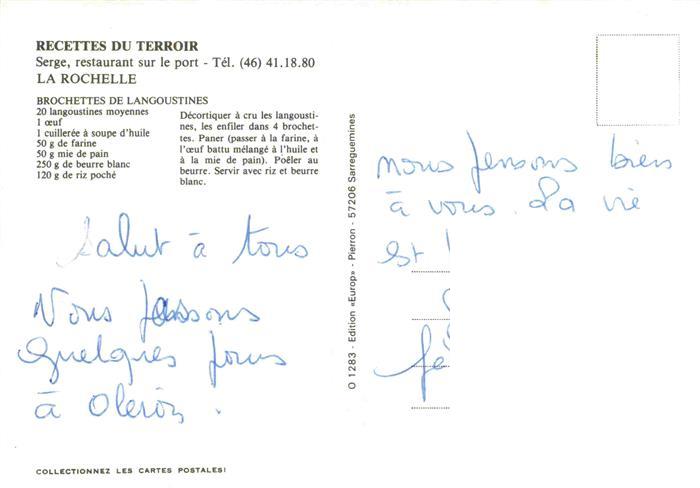 RECETTES DU TERROIR
Serge, restaurant sur le port - Tél. (46) 41.18.80
LA ROCHELLE
BROCHETTES DE LANGOUSTINES
20 langoustines moyennes
1 œuf
1 cuillerée à soupe d'huile
50 g de farine
50 g mie de pain
250 g de beurre blanc
120 g de riz poché
Décortiquer à cru les langousti-
nes, les enfiler dans 4 brochet-
tes. Paner (passer à la farine, à
l'œuf battu mélangé à l'huile et
à la mie de pain). Poêler au
beurre. Servir avec riz et beurre
blanc.
Salut à tous
Nous passons
quelques jours
à Oleron.
COLLECTIONNEZ LES CARTES POSTALES!
O 1283 - Edition «Europ» - Pierron - 57206 Sarreguemines
nous pensons bien
à vous. La vie
est